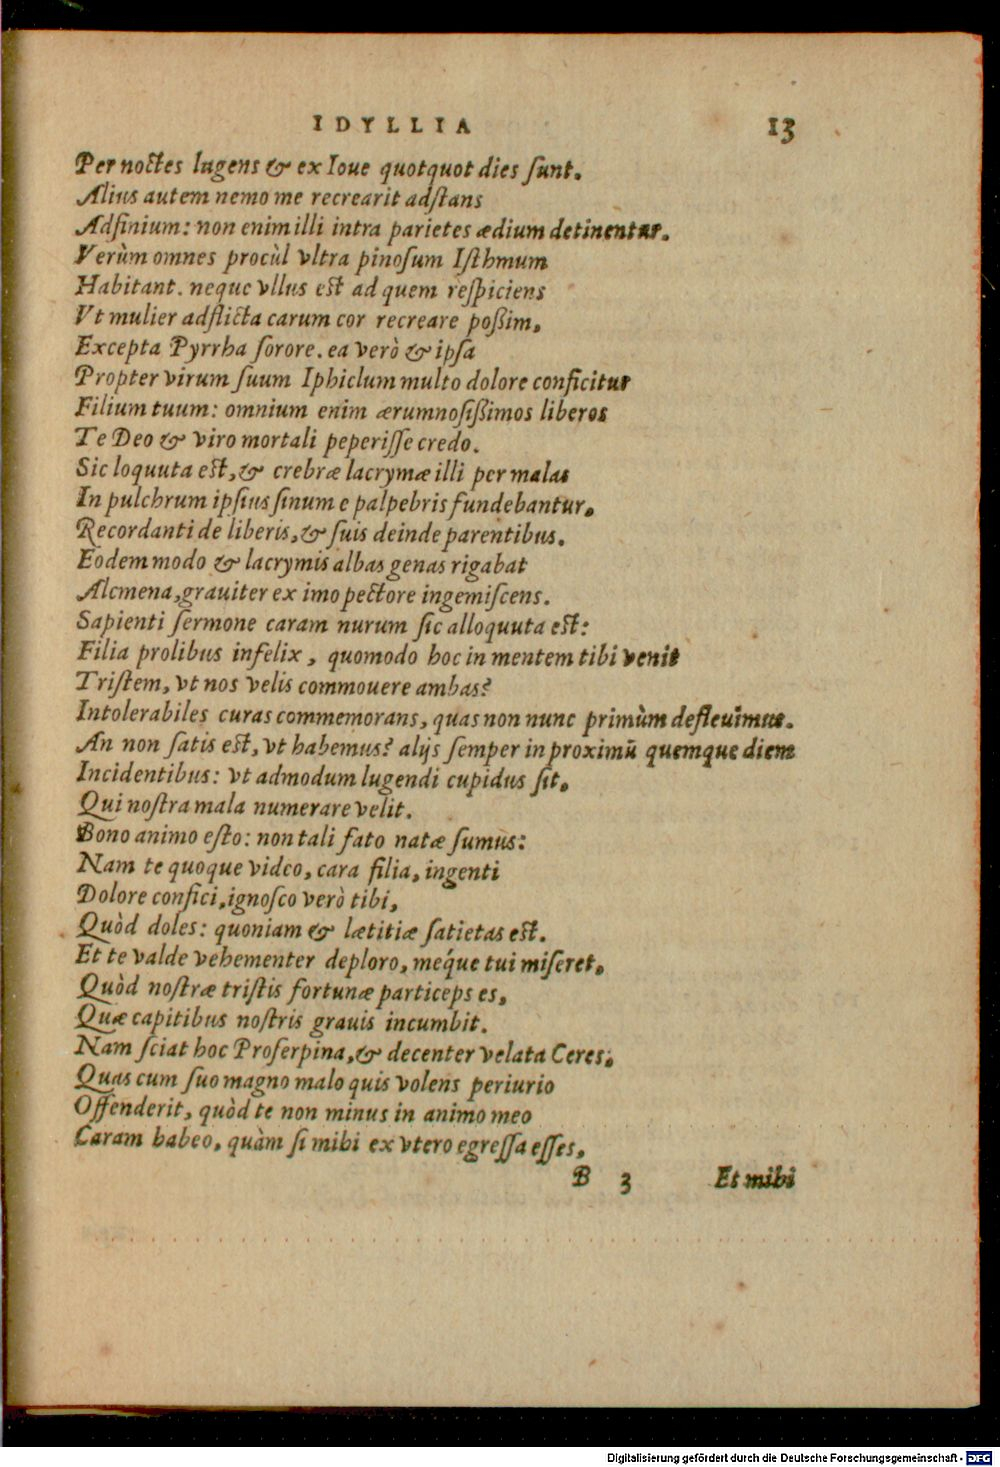 IDYLLIA 13
Per noctes lugens & ex Ioue quotquot dies sunt.
Alius autem nemo me recrearit adstans
Adfinium: non enim illi intra parietes ædium detinentur.
Verùm omnes procùl vltra pinosum Isthmum
Habitant. neque vllus est ad quem respiciens
Vt mulier adflicta carum cor recreare poßim,
Excepta Pyrrha sorore. ea verò & ipsa
Propter virum suum Iphiclum multo dolore conficitur
Filium tuum: omnium enim ærumnosißimos liberos
Te Deo & viro mortali peperisse credo.
Sic loquuta est, & crebræ lacrymæ illi per malas
In pulchrum ipsius sinum e palpebris fundebantur,
Recordanti de liberis, & suis deinde parentibus.
Eodem modo & lacrymis albas genas rigabat
Alcmena, grauiter ex imo pectore ingemiscens.
Sapienti sermone caram nurum sic alloquuta est:
Filia prolibus infelix, quomodo hoc in mentem tibi venit
Tristem, vt nos velis commouere ambas?
Intolerabiles curas commemorans, quas non nunc primùm defleuimus.
An non satis est, vt habemus? alijs semper in proximū quemque diem
Incidentibus: vt admodum lugendi cupidus sit,
Qui nostra mala numerare velit.
Bono animo esto: non tali fato natæ sumus:
Nam te quoque video, cara filia, ingenti
Dolore confici, ignosco verò tibi,
Quòd doles: quoniam & lætitiæ satietas est.
Et te valde vehementer deploro, méque tui miseret,
Quòd nostræ tristis fortunæ particeps es,
Quæ capitibus nostris grauis incumbit.
Nam sciat hoc Proserpina, & decenter velata Ceres,
Quas cum suo magno malo quis volens periurio
Offenderit, quòd te non minus in animo meo
Caram habeo, quàm si mihi ex vtero egressa esses,
B 3 Et mihi
Digitalisierung gefördert durch die Deutsche Forschungsgemeinschaft - DFG